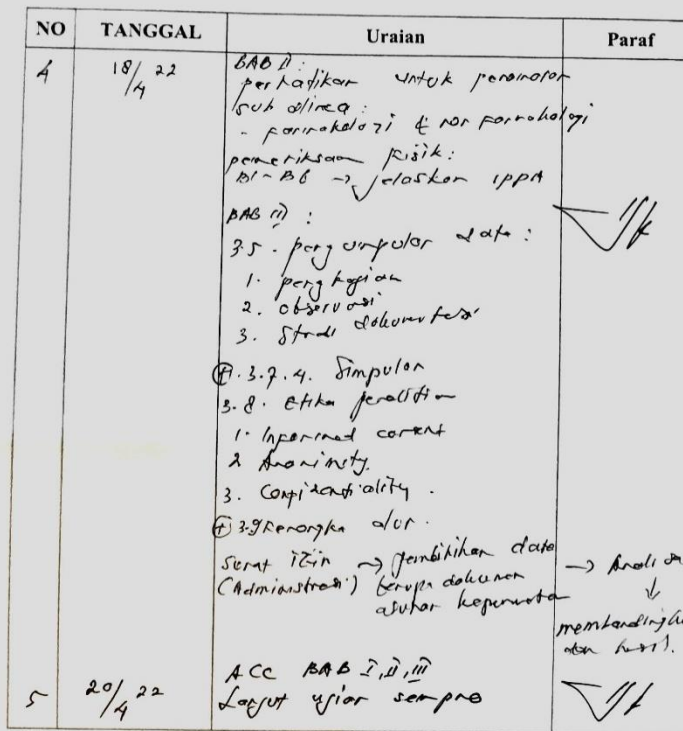 NO TANGGAL Uraian Paraf
4 18/4 22 BAB II :
perhatikan untuk penomoran
sub dirca :
- farmakologi & non farmakologi
pemeriksaan fisik :
B1-B6 → jelaskan IPPA
BAB III :
3.5. pengumpulan data :
1. pengkajian
2. observasi
3. Studi dokumentasi
+ 3.7.4. Simpulan
3.8. Etika penelitian
1. Informed consent
2 Anonimity
3. Confidentiality.
+ 3.9 Kerangka alur.
Surat izin → pengambilan data → Analisa
(Administrasi) berupa dokumen ↓
asuhan keperawatan
membandingkan
dan hasil.
ACC BAB I, II, III
5 20/4 22 Lanjut ujian sempro